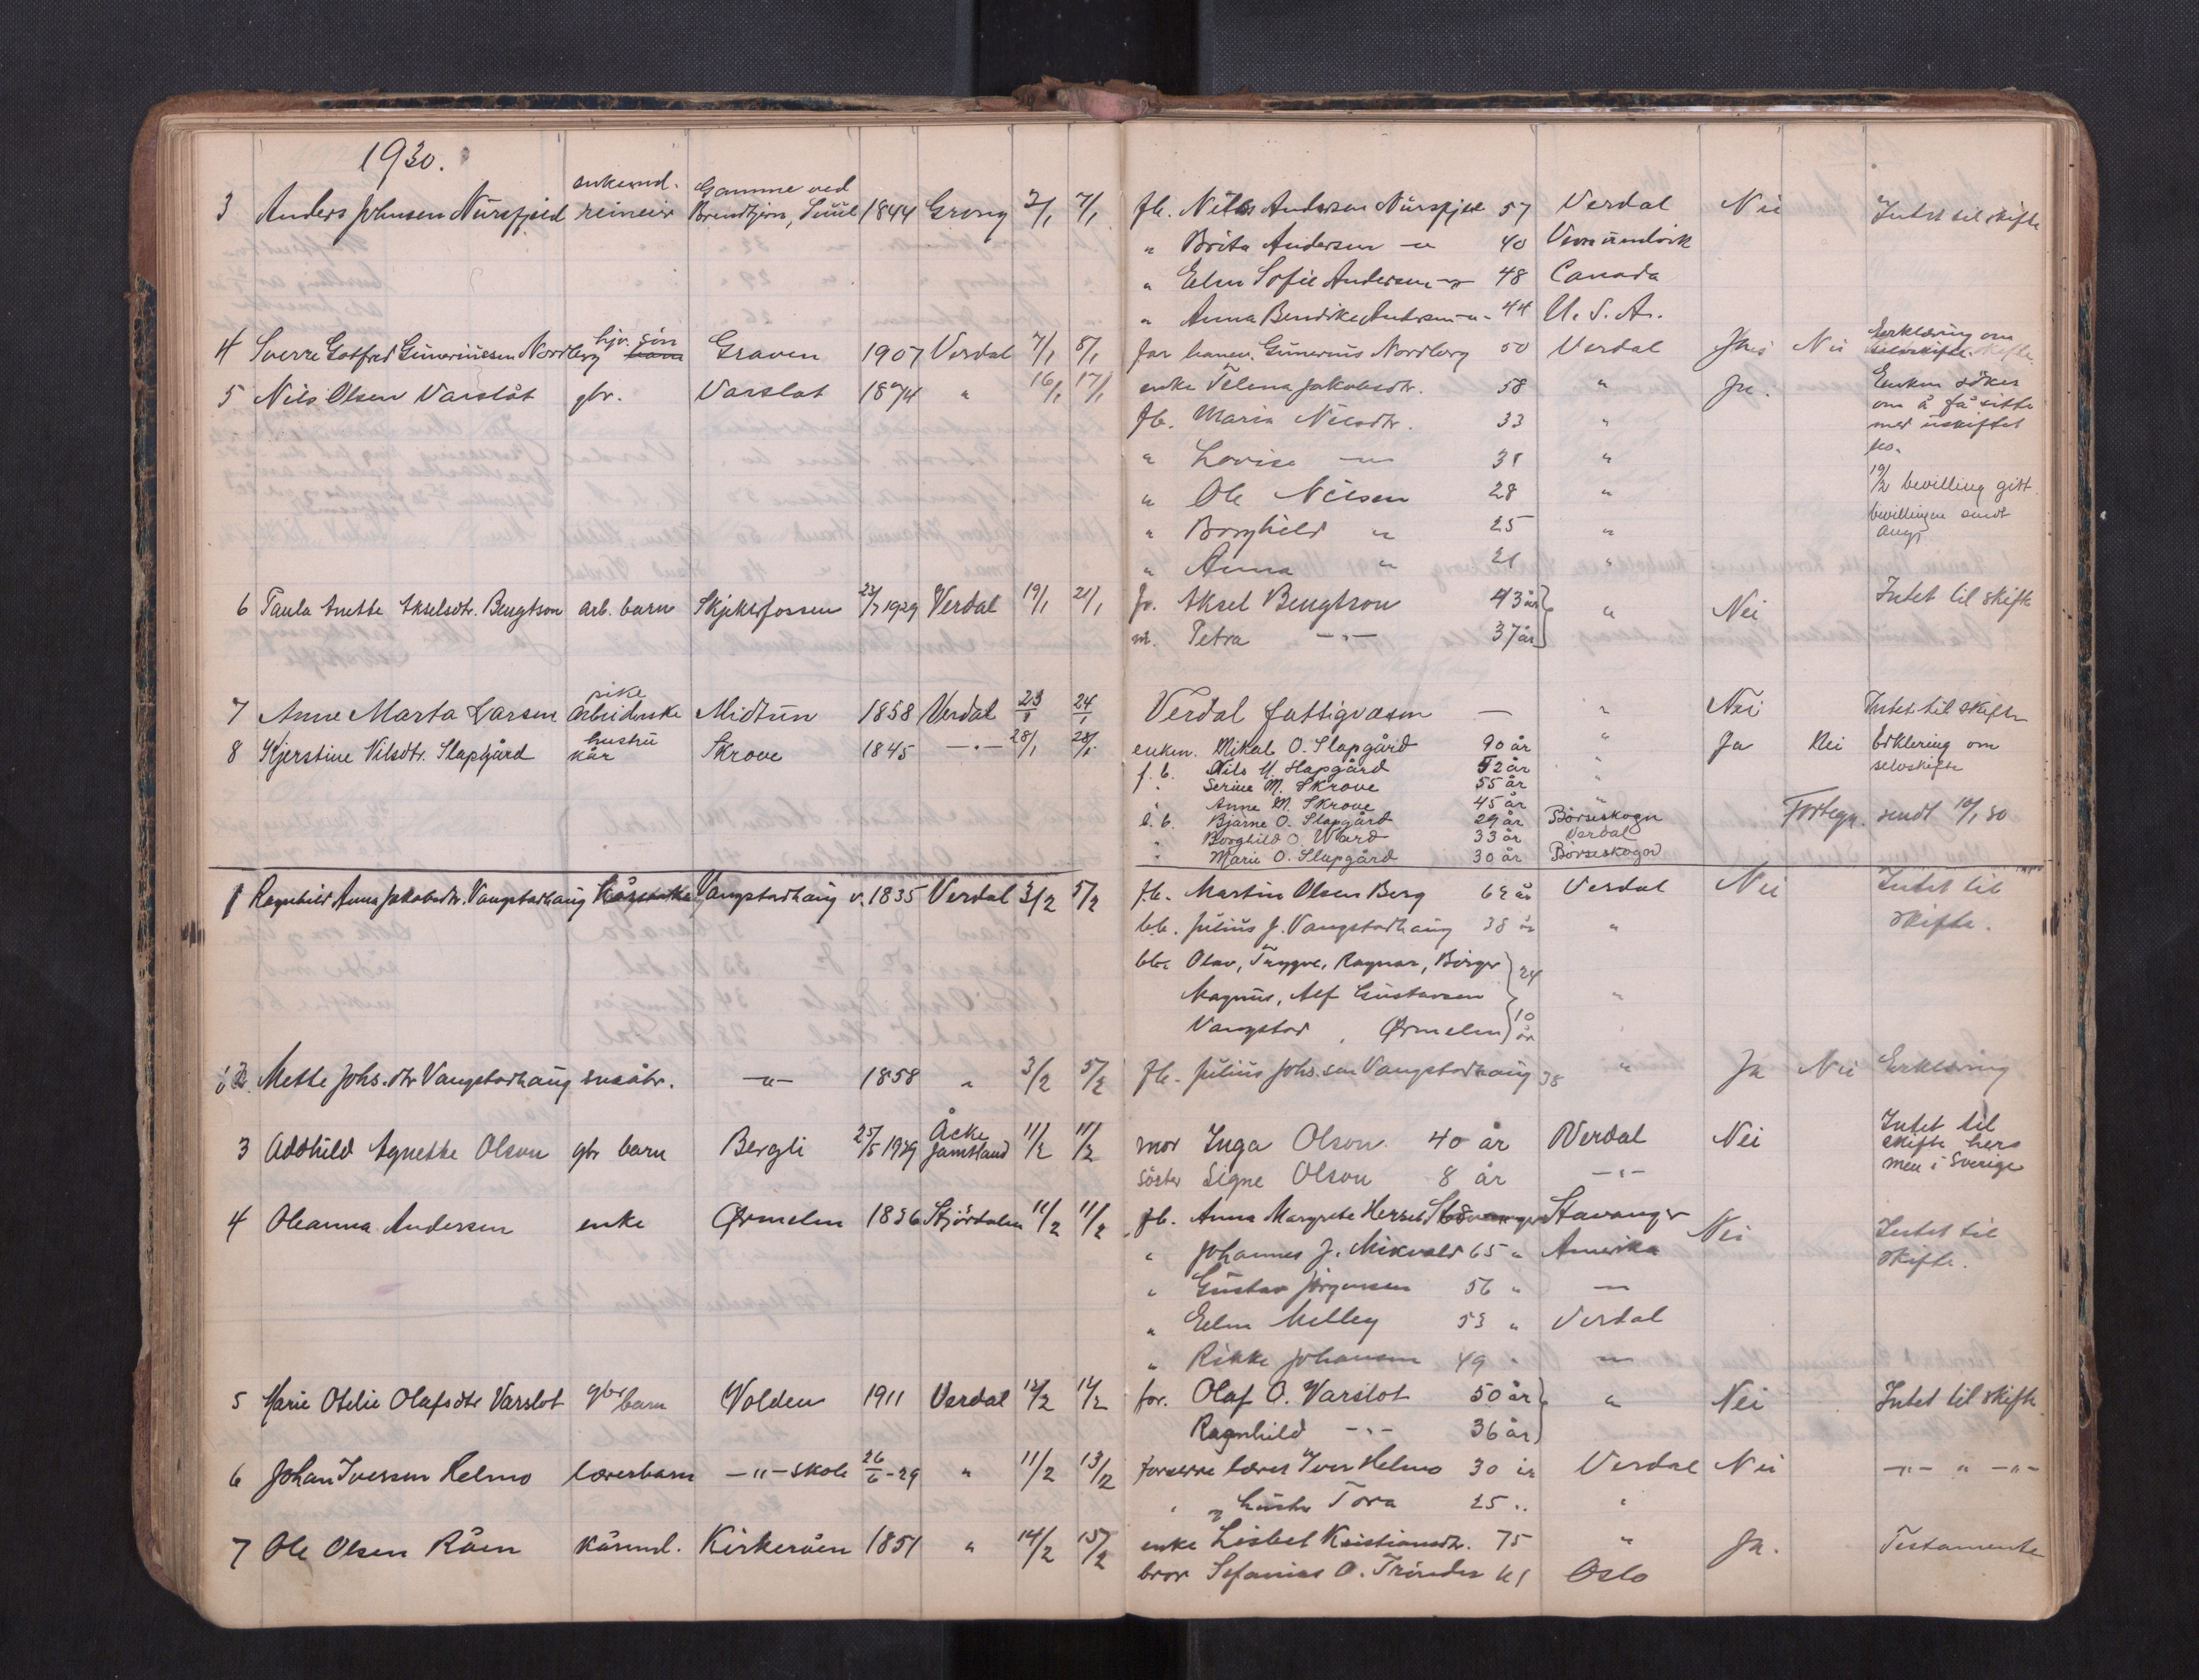 1930.
3 Anders Johnsen Nursfjeld enkemd. reineier Gamme ved Brendtjern, Suul 1844 Grong 2/1 7/1 fb. Nils Andersen Nursfjell 57 Verdal Nei Intet til skifte
" Brita Andersen -"- 40
" Elen Sofie Andersen -"- 48 Canada
" Anna Bendike Andersen -"- 44 U. S. A.
4 Sverre Gotfred Guneriussen Nordberg hjv. søn Graven 1907 Verdal 7/1 8/1 far banev. Gunerius Nordberg 50 Verdal Nei Erklæring om selvskifte.
5 Nils Olsen Varslåt gbr. Varslat 1874 " 16/1 17/1 enke Telina Jakobsdtr. 58 " Ja. Enken søker
om å få sitte
fb. Maria Nilsdtr. 33 " med uskiftet
bo.
" Lovise -"- 31 "
" Ole Nilsen 28 " 19/2 bevilling gitt.
bevillingen sendt
" Borghild " 25 "
" Anna " 21 "
6 Paula Anette Akselsdtr. Bengtson arb. barn Skjækerfossen 22/7 1929 Verdal 19/1 21/1 fr. Aksel Bengtson 43 år " Nei Intet til skifte
m. Petra -"- 37 år
7 Anne Marta Larsen pike arbeiderske Midtun 1858 Verdal 23/1 24/1 Verdal fattigvæsen — " Nei Intet til skifte
8 Kjerstine Nilsdtr. Slapgård hustru kår Skrove 1845 -"- 28/1 28/1 enkem. Mikal O. Slapgård 90 år " Ja Nei Erklering om
selvskifte
f. b. Nils M. Slapgård 52 år "
" Serine M. Skrove 55 år "
" Anne M. Skrove 45 år "
b. b. Bjarne O. Slapgård 29 år Børseskogn Fortegn. sendt 10/1 30
" Borghild O. Ward 33 år Verdal
" Marie O. Slapgård 30 år Børseskogn
1 Ragnhild Anna Jakobsdtr. Vangstadhaug Vangstadhaug v. 1835 Verdal 3/2 5/2 fb. Martin Olsen Berg 62 år Verdal Nei Intet til
skifte.
b.b. Julius J. Vangstadhaug 38 år "
bb. Olav, Trygve, Ragnar, Birger 24
Magnus, Alf Gustavsen "
Vangstad, Ørmelen 10 år
2 Mette Johs.dtr Vangstadhaug småbr. -"- 1858 " 3/2 5/2 fb. Julius Johs.sen Vangstadhaug 38 " Ja Nei Erklæring
3 Oddhild Agnethe Olson gbr barn Bergli 25/5 1929 Åcke Jämtland 11/2 11/2 mor Inga Olson 40 år Verdal Nei Intet til
skifte hers
men i Sverige
søster Signe Olson 8 år -"-
4 Oleanna Andersen enke Ørmelen 1836 Stjørdalen 11/2 11/2 fb. Anna Margrete Stavanger Nei Intet til
skifte.
" Johannes J. Mikvold 65 " Amerika
" Gustav Jørgensen 56 " —
" Elen Melby 53 " Verdal
" Rikke Johansen 49 " -"-
5 Marie Otelie Olafsdtr Varslot gbr barn Volden 1911 Verdal 12/2 14/2 for. Olaf O. Varslot 50 år " Nei Intet til skifte
Ragnhild -"- 36 år
6 Johan Iversen Helmo lærerbarn -"- skole 26/6-29 " 11/2 13/2 foreldre lærer Iver Helmo 30 år Verdal Nei -"- " -"-
" og hustru Tora 25 " "
7 Ole Olsen Råen kårmd. Kirkeråen 1851 " 14/2 15/2 enke Lisbet Kristiansdtr. 75 " Ja. Testamente
bror Sefanias O. Trønder 61 Oslo